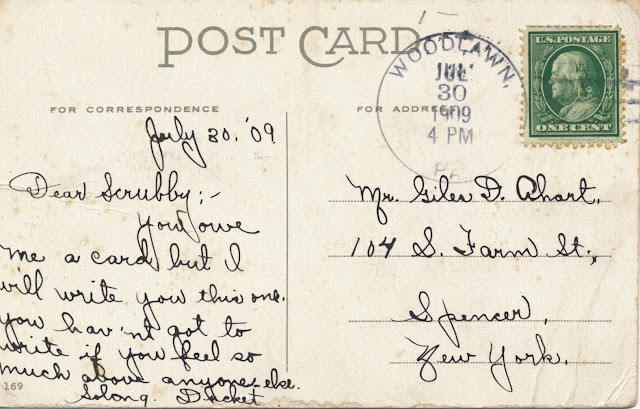 POST CARD
FOR CORRESPONDENCE
FOR ADDRESS
WOODLAWN,
JUL
30
1909
4 PM
PA.
U.S. POSTAGE
ONE CENT
July 30, '09
Dear Scrubby;-
You owe
me a card but I
will write you this one.
You hav'nt got to
write if you feel so
much above anyone else.
Solong
169
Mr. Giles D. Ahart,
104 S. Farm St.,
Spencer,
New York.